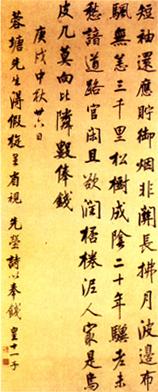 短袖還應貯御烟非關長拂月波邊布
颿無恙三千里松樹成陰二十年驥老未
愁諳道路官閒且欲潤桮棬人家是烏
皮几莫向比隣數俸錢
庚戌中秋廿六日
蓉塘先生得假旋里省視 先塋詩以奉餞 皇十一子